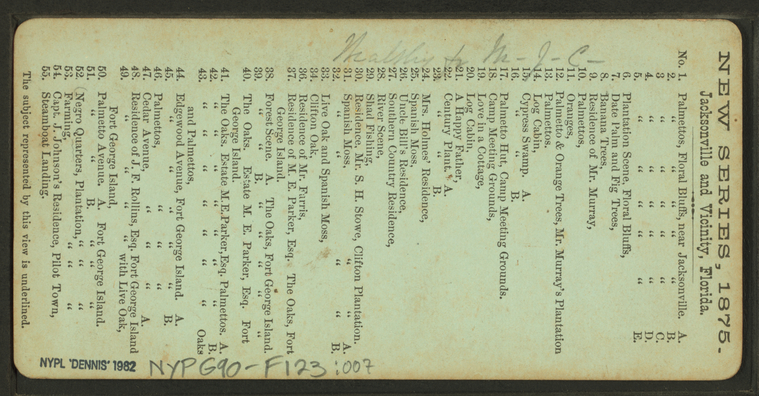 NEW SERIES, 1875.
Jacksonville and Vicinity, Florida.
No. 1. Palmettos, Floral Bluffs, near Jacksonville. A.
2. " " " " B.
3. " " " " C.
4. " " " " D.
5. " " " " E.
6. Plantation Scene, Floral Bluffs,
7. Date Palm and Fig Trees,
8. Banana Trees,
9. Residence of Mr. Murray,
10. Palmettos,
11. Oranges,
12. Palmetto & Orange Trees, Mr. Murray's Plantation
13. Palmettos.
14. Log Cabin,
15. Cypress Swamp. A.
16. " " B.
17. Palmetto Hut, Camp Meeting Grounds.
18. Camp Meeting Grounds,
19. Love in a Cottage,
20. Log Cabin,
21. A Happy Father,
22. Century Plant. A.
23. " " B.
24. Mrs. Holmes' Residence,
25. Spanish Moss,
26. Uncle Bill's Residence,
27. Southern Country Residence,
28. River Scene,
29. Shad Fishing,
30. Residence, Mr. S. H. Stowe, Clifton Plantation.
31. Spanish Moss, " A.
32. " " " B.
33. Live Oak and Spanish Moss,
34. Clifton Oak,
36. Residence of Mr. Farris,
37. Residence of M. E. Parker, Esq. The Oaks, Fort
George Island.
38. Forest Scene. A. The Oaks, Fort George Island.
39. " " B. " " " "
40. The Oaks, Estate M. E. Parker, Esq. Fort
George Island.
41. The Oaks, Estate M.E.Parker,Esq. Palmettos. A.
42. " " " " " B.
43. " " " " Oaks
and Palmettos,
44. Edgewood Avenue, Fort George Island. A.
45. " " " " B.
46. Palmettos, " " "
47. Cedar Avenue, " " " A.
48. Residence of J. F. Rollins, Esq. Fort George Island
49. " " " with Live Oak,
Fort George Island,
50. Palmetto Avenue. A. Fort George Island.
51. " " B. " " "
52. Negro Quarters, Plantation, " " "
53. Farming, " " "
54. Capt. J. Johnson's Residence, Pilot Town,
55. Steamboat Landing.
The subject represented by this view is underlined.
NYPL "DENNIS" 1982
NYPG90-F123:007